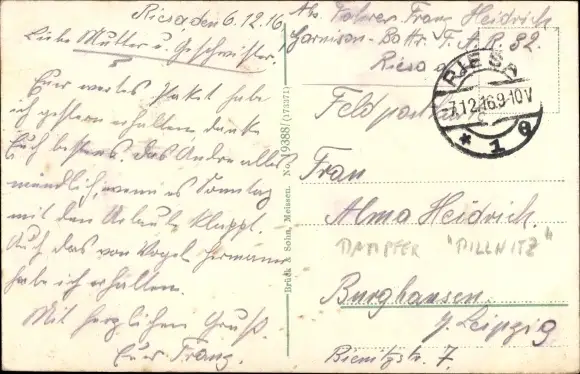 Riesa den 6.12.16.
Liebe Mutter u. Geschwister!
Euer wertes Paket habe
ich gestern erhalten, danke
Euch bestens. Das Andre alles
mündlich, wenn es Sonntag
mit den Urlaub klappt.
Auch das von Vogel Hermann
habe ich erhalten.
Mit herzlichen Gruß.
Euer Franz.
Brück & Sohn, Meissen. No. 9388 (173371)
Abs. Fahrer Franz Heidrich
Garnison-Battr. F. A. R. 32.
Riesa a
RIESA
7.12.16.9-10V
* 1 e
Feldpostkarte
Frau
Alma Heidrich.
DAMPFER "PILLNITZ"
Burghausen
b/Leipzig
Bienitzstr. 7.